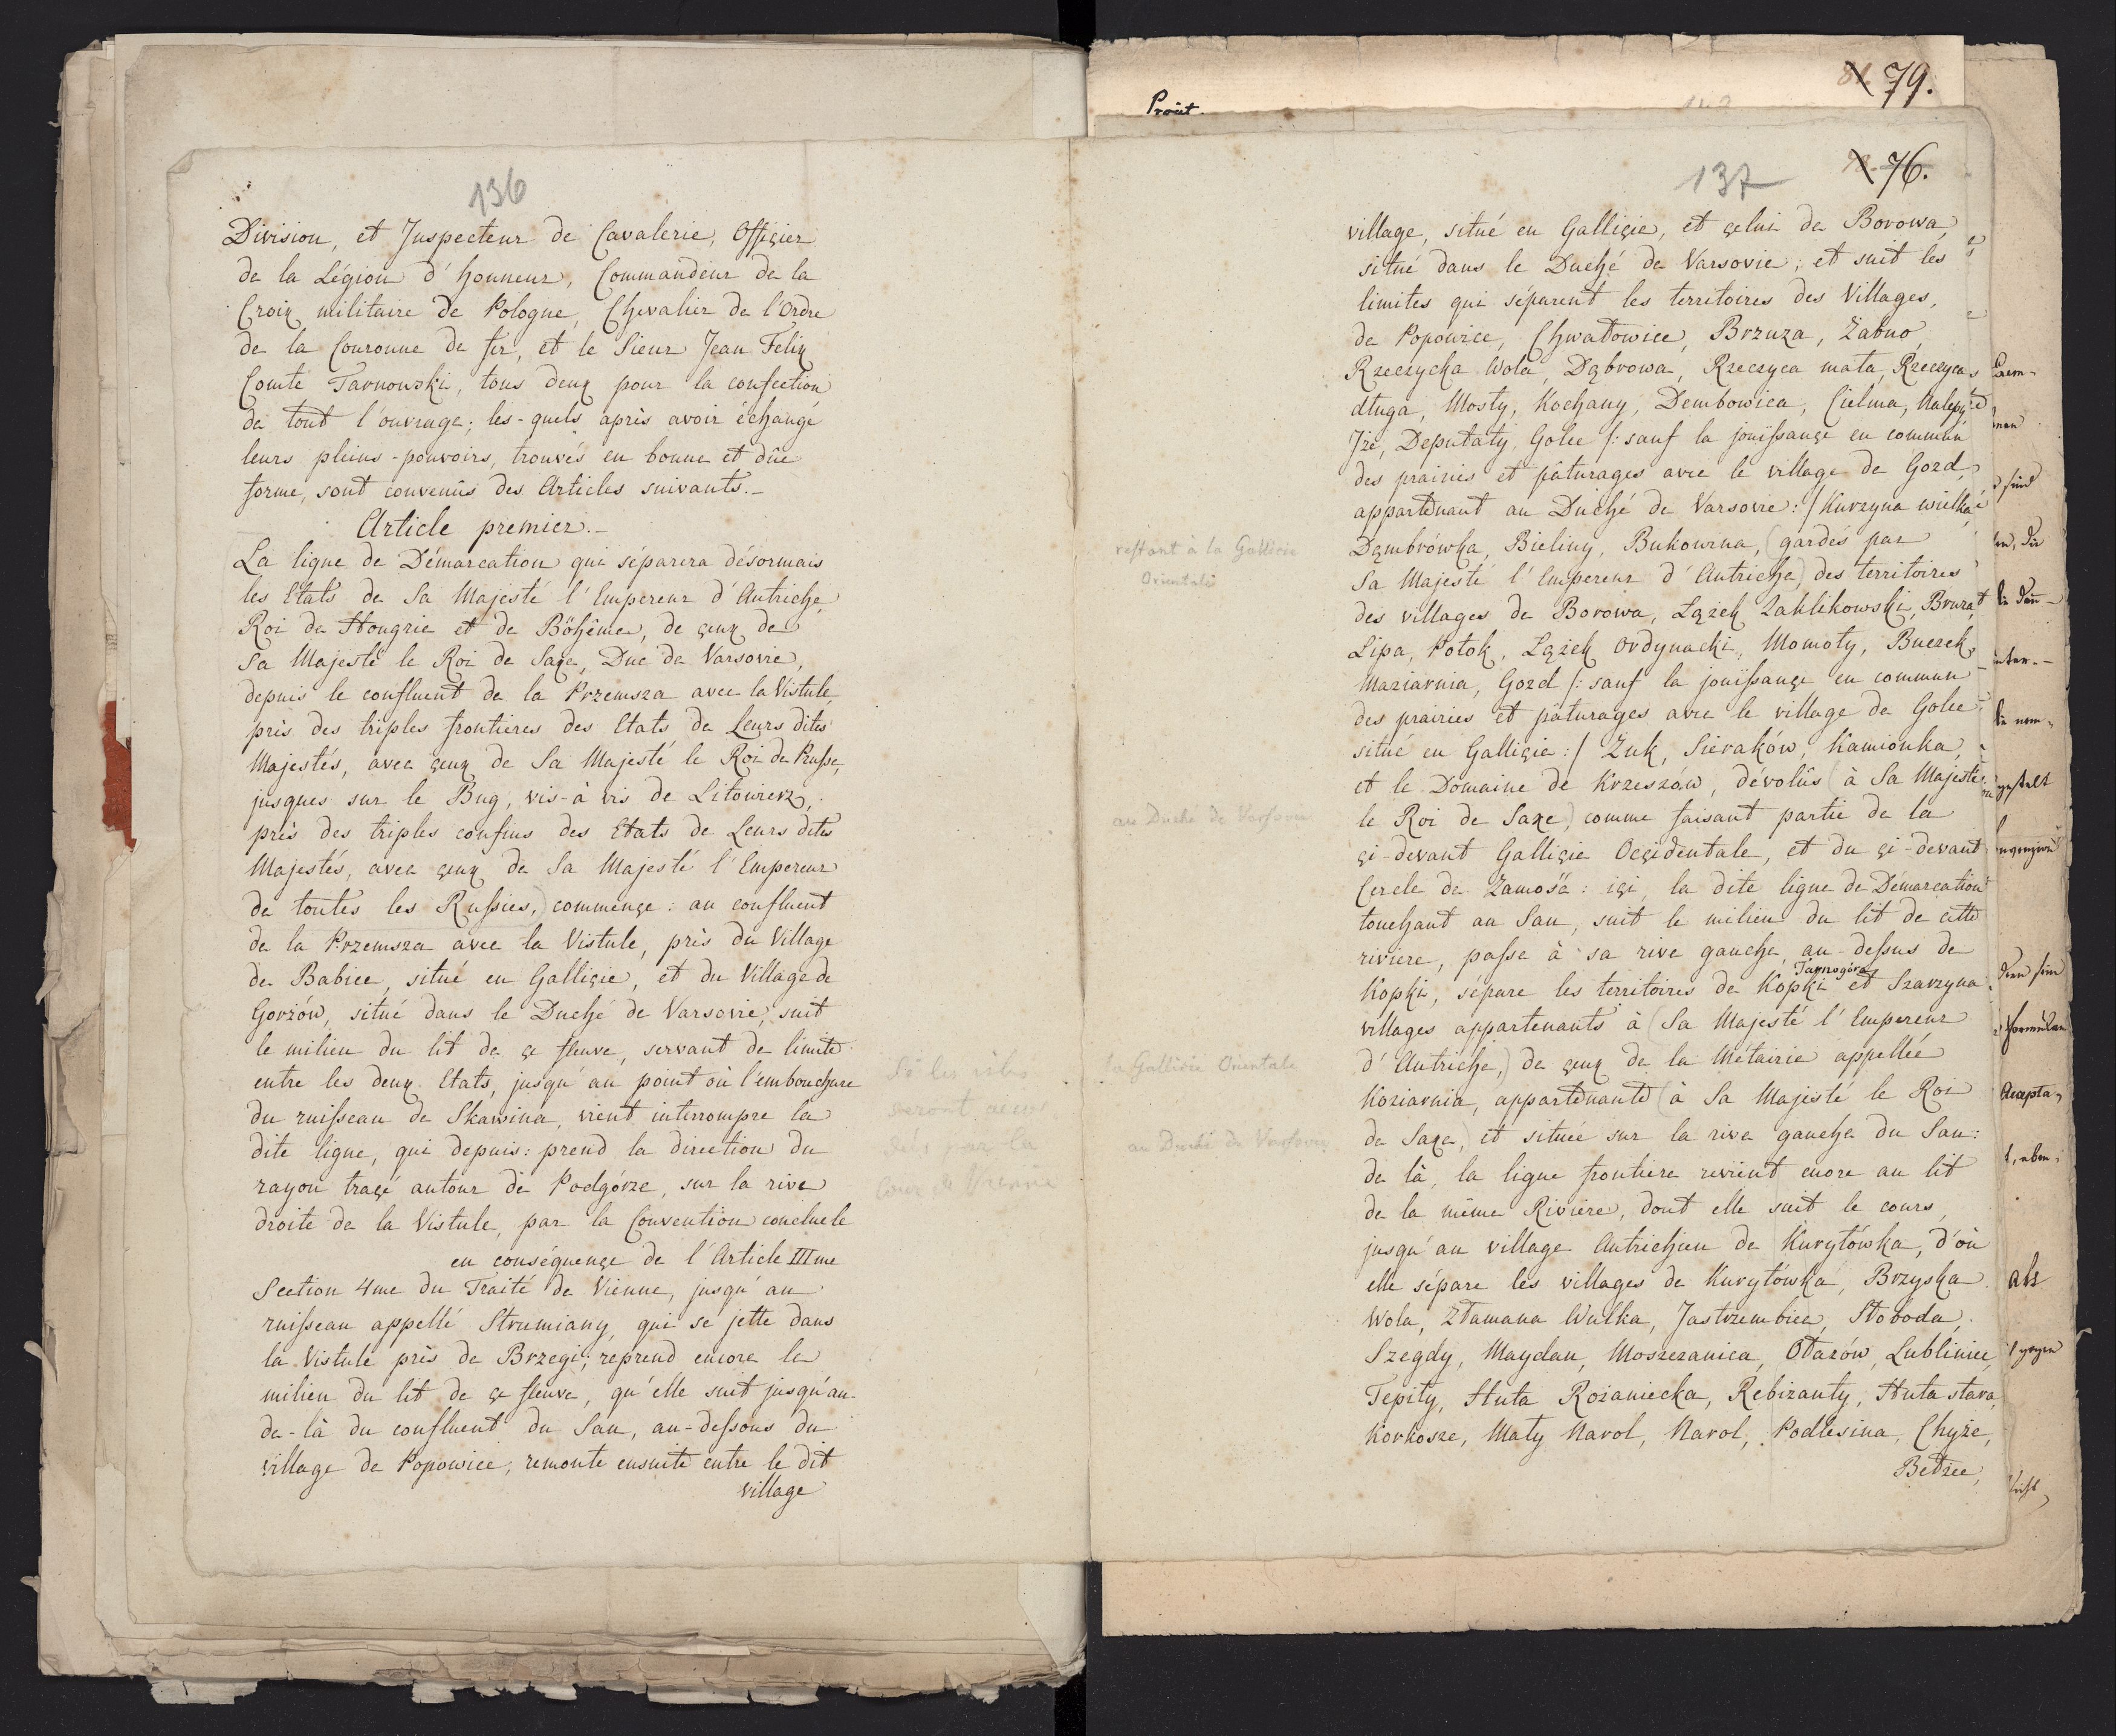 136
Division, et Inspecteur de Cavalerie, Offiçier
de la Légion d'honneur, Commandeur de la
Croix militaire de Pologne, Chevalier de l'Ordre
de la Couronne de fer, et le Sieur Jean Felix
Comte Tarnowski, tous deux pour la confection
de tout l'ouvrage; les-quels après avoir échangé
leurs pleins-pouvoirs, trouvés en bonne et dûe
forme, sont convenûs des Articles suivants.-
Article premier.-
La ligne de Démarcation qui séparera désormais
les Etats de Sa Majesté l'Empereur d'Autriche,
Roi de Hongrie et de Böhême, de çeux de
Sa Majesté le Roi de Saxe, Duc de Varsovie,
depuis le confluent de la Przemsza avec la Vistule,
près des triples frontières des Etats de Leurs dites
Majestés, avec çeux de Sa Majesté le Roi de Prusse,
jusques sur le Bug, vis-à vis de Litowierz,
près des triples confins des Etats de Leurs dites
Majestés, avec çeux de Sa Majesté l'Empereur
de toutes les Russies,) commençe: au confluent
de la Przemsza avec la Vistule, près du Village
de Babice, situé en Galliçie, et du Village de
Gorzów, situé dans le Duché de Varsovie, suit
le milieu du lit de çe fleuve, servant de limite
entre les deux Etats, jusqu'au point où l'embouchure
du ruisseau de Skawina, vient interrompre la
dite ligne, qui depuis: prend la direction du
rayon traçé autour de Podgórze, sur la rive
droite de la Vistule, par la Convention conclue le
en conséquençe de l'Article IIIme
Section 4me du Traité de Vienne, jusqu'au
ruisseau appellé Strumiany, qui se jette dans
la Vistule près de Brzegi; reprend encore le
milieu du lit de çe fleuve, qu'elle suit jusqu'au-
de-là du confluent du San, au-dessous du
village de Popowice; remonte ensuite entre le dit
village
Si les isles
seront
par la
Cour de Vienne
79.
Prout.
137
76.
village, situé en Galliçie, et çelui de Borowa,
situé dans le Duché de Varsovie; et suit les
limites qui séparent les territoires des Villages,
de Popowice, Chwałowice, Brzuza, Żabno,
Rzeczycka Wola, Dąbrowa, Rzeczyca mała, Rzeczyca
długa, Mosty, Kochany, Dembowica, Cielma,
Jże, Deputaty, Golce /: sauf la jouissançe en commun
des prairies et pâturages avec le village de Gozd,
appartenant au Duché de Varsovie:/ Kurzyna wielka
Dąmbrówka, Bieliny, Bukowina, (gardés par
Sa Majesté l'Empereur d'Autriche) des territoires
des villages de Borowa, Łążek Zaklikowski, Bruza,
Lipa, Potok, Łążek Ordynacki, Momoty, Buczek,
Maziarnia, Gozd /: sauf la jouissançe en commun
des prairies et pâturages avec le village de Golce
situé en Galliçie:/ Żuk, Sieraków, Kamionka,
et le Domaine de Krzeszów, dévolûs (à Sa Majesté
le Roi de Saxe,) comme faisant partie de la
çi-devant Galliçie Occidentale, et du çi-devant
Cercle de Zamość: içi, la dite ligne de Démarcation
touchant au San, suit le milieu du lit de cette
rivière, passe à sa rive gauche, au-dessus de
Tarnogóra
Kopki, sépare les territoires de Kopki et Szarzyna
villages appartenants à (Sa Majesté l'Empereur
d'Autriche,) de çeux de la Métairie appellée
Koziarnia, appartenante (à Sa Majesté le Roi
de Saxe,) et située sur la rive gauche du San:
de là, la ligne frontière revient encore au lit
de la même Rivière, dont elle suit le cours,
jusqu'au village Autrichien de Kuryłówka, d'où
elle sépare les villages de Kuryłówka, Brzyska
Wola, Złamana Wulka, Jastrzembiec, Słoboda,
Szegdy, Maydan, Moszczanica, Ołazów, Lubliniec,
Tepiły, Huta Rożaniecka, Rebizanty, Huta stara,
Korkosze, Mały Narol, Narol, Podlesina, Chyże,
Bełzec,
restant à la Gallicie
Orientale
au Duché de Varsovie
la Gallicie Orientale
au Duché de Varsovie